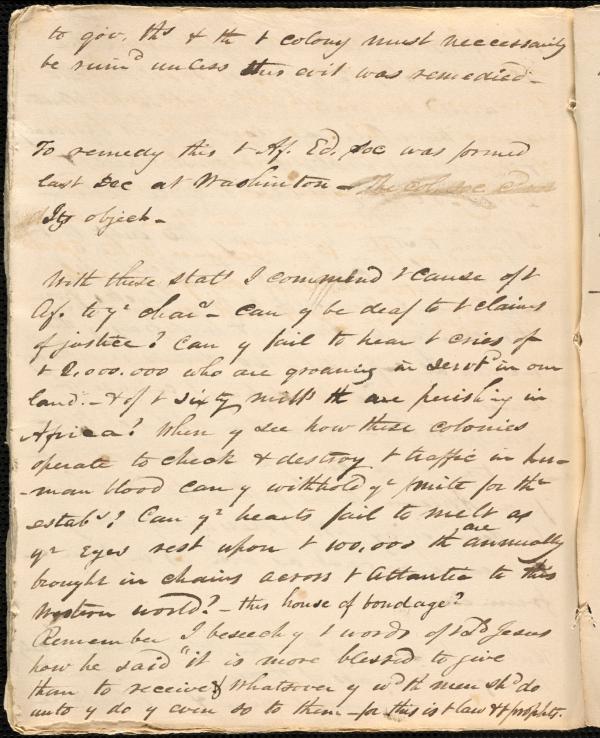 to gov. ths & th t colony must neccessarily
be ruind unless this evil was remedied –
To remedy this t Af. Ed. Soc was formed
last Dec at Washington – The col. soc
Its object –
With these stats I commend t cause of t
Af. to yr chars – Can y be deaf to t claims
of justice? Can y fail to hear t cries of
t 2,000.000 who are groaning in servt in our
land. – & of t sixty mills th are perishing in
Africa? When y see how these colonies
operate to check & destroy t traffic in hu-
-man blood can y withhold yr mite for thr
estabs? Can yr hearts fail to melt as
yr Eyes rest upon t 100,000 th are annually
brought in chains across t Atlantic to this
Western world? – this house of bondage?
Remember I beseech y t words of t Ld Jesus
how he said "it is more blessed to give
than to receive & Whatsoever y wd th men shd do
unto y do y even so to them – for this is t law & t prophets.